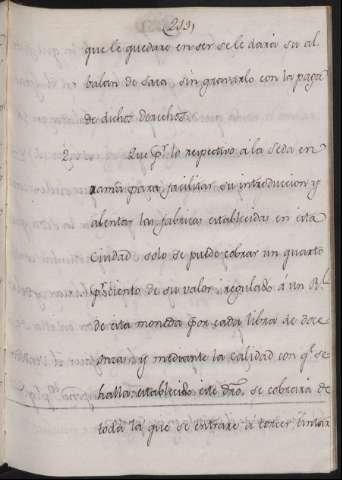 (213)
que le quedare en ser se le dará su al
balan de saca sin gravarlo con la paga
de dichos derechos.
2 Que pr. lo respectivo a la seda en
rama para facilitar su introduccion y
alentar las fabricas establecidas en esta
Ciudad solo se puede cobrar un quarto
pr. ciento de su valor, regulado a un Rl.
de esta moneda por cada libra de doce
onzas; y mediante la calidad con qe. se
halla establecido este dro. se cobrará de
toda la que se entrare á torcer tintar